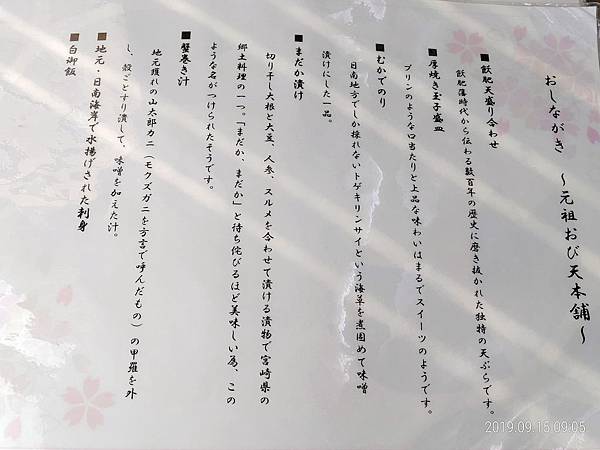 おしながき　～元祖おび天本舗～
■飫肥天盛り合わせ
飫肥藩時代から伝わる数百年の歴史に磨き抜かれた独特の天ぷらです。
■厚焼き玉子盛皿
プリンのような口当たりと上品な味わいはまるでスイーツのようです。
■むかでのり
日南地方でしか採れないトゲキリンサイという海草を煮固めて味噌
漬けにした一品。
■まだか漬け
切り干し大根と大豆、人参、スルメを合わせて漬ける漬物で宮崎県の
郷土料理の一つ。「まだか、まだか」と待ち侘びるほど美味しい為、この
ような名がつけられたそうです。
■蟹巻き汁
地元獲れの山太郎カニ（モクズガニを方言で呼んだもの）の甲羅を外
し、殻ごとすり潰して、味噌を加えた汁。
■地元・日南海岸で水揚げされた刺身
■白御飯
2019.09.15 09:05